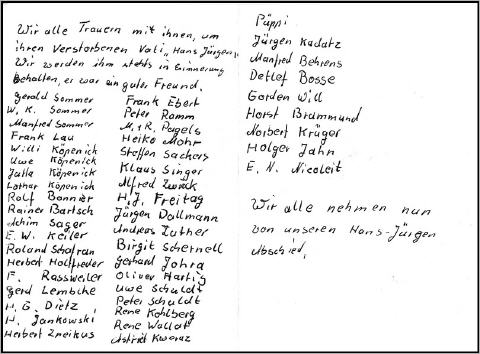 Wir alle Trauern mit ihnen, um
ihren Verstorbenen Vati, "Hans Jürgen",
Wir werden ihm stehts in Erinnerung
behalten, er war ein guter Freund.
Gerald Sommer
W. K. Sommer
Manfred Sommer
Frank Lau
Willi Köpenick
Uwe Köpenick
Jutta Köpenick
Lothar Köpenick
Rolf Bonnier
Rainer Bartsch
Achim Sager
E. W. Keiler
Roland Schafran
Herbert Holfreder
F. Rassweiler
Gerd Lembcke
H. G. Dietz,
H. Jankowski
Herbert Zreikus
Frank Ebert
Peter Ramm
M. + R. Pagels
Heiko Mohr
Steffen Sachers
Klaus Singer
Alfred Zwack
H. J. Freitag
Jürgen Dallmann
Andreas Luther
Birgit Schernell
Gerhard Johra
Oliver Hartig
Uwe Schuldt
Peter Schuldt
Rene Kohlberg
Rene Wallat
Astrid
Püppi
Jürgen Kadatz
Manfred Behrens
Detlef Bosse
Gorden Will
Horst Brummund
Norbert Krüger
Holger Jahn
E. N. Nicoleit
Wir alle nehmen nun
von unseren Hans-Jürgen
Abschied.